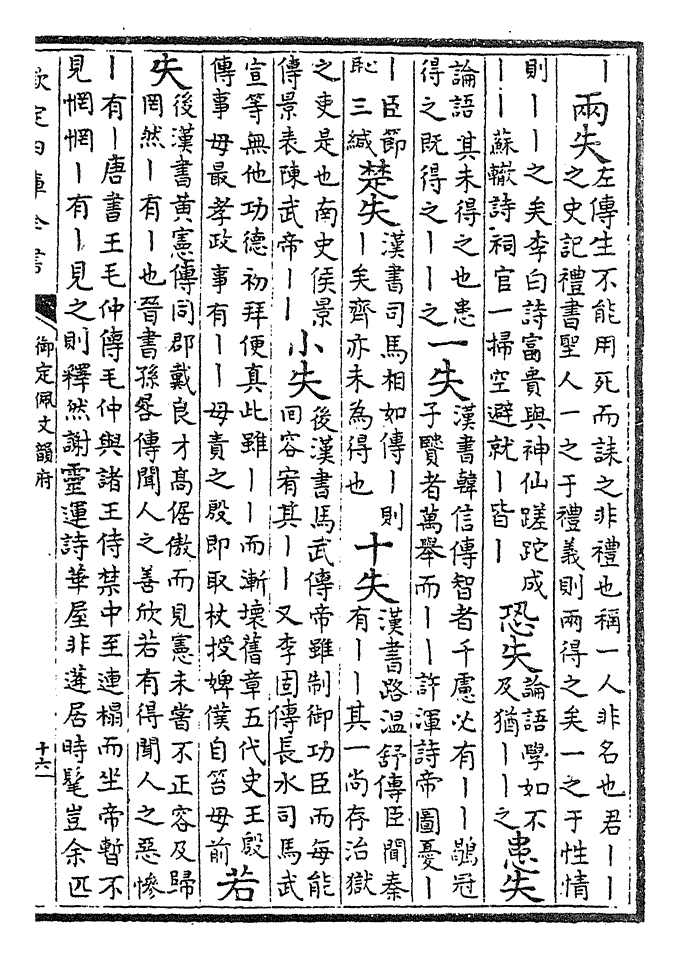 ｜兩失左傳生不能用死而誄之非禮也稱一人非名也君｜｜
之史記禮書聖人一之于禮義則兩得之矣一之于性情
則｜｜之矣李白詩富貴與神仙蹉跎成
｜｜蘇轍詩祠官一掃空避就｜皆｜
恐失論語學如不
及猶｜｜之
患失
論語其未得之也患
得之既得之｜｜之
一失漢書韓信傳智者千慮必有｜｜鶡冠
子贒者萬舉而｜｜許渾詩帝圖憂｜
｜臣節
恥三緘
楚失漢書司馬相如傳｜則
｜矣齊亦未為得也
十失漢書路溫舒傳臣聞秦
有｜｜其一尚存治獄
之吏是也南史侯景
傳景表陳武帝｜｜
小失後漢書馬武傳帝雖制御功臣而每能
回容宥其｜｜又李固傳長水司馬武
宣等無他功德初拜便真此雖｜｜而漸壞舊章五代史王殷
傳事母最孝政事有｜｜母責之殷即取杖授婢僕自笞母前
若
失後漢書黃憲傳同郡戴良才高倨傲而見憲未嘗不正容及歸
罔然｜有｜也晉書孫晷傳聞人之善欣若有得聞人之惡慘
｜有｜唐書王毛仲傳毛仲與諸王侍禁中至連榻而坐帝暫不
見惘惘｜有｜見之則釋然謝靈運詩華屋非蓬居時髦豈余匹
欽定四庫全書
御定佩文韻府
十六